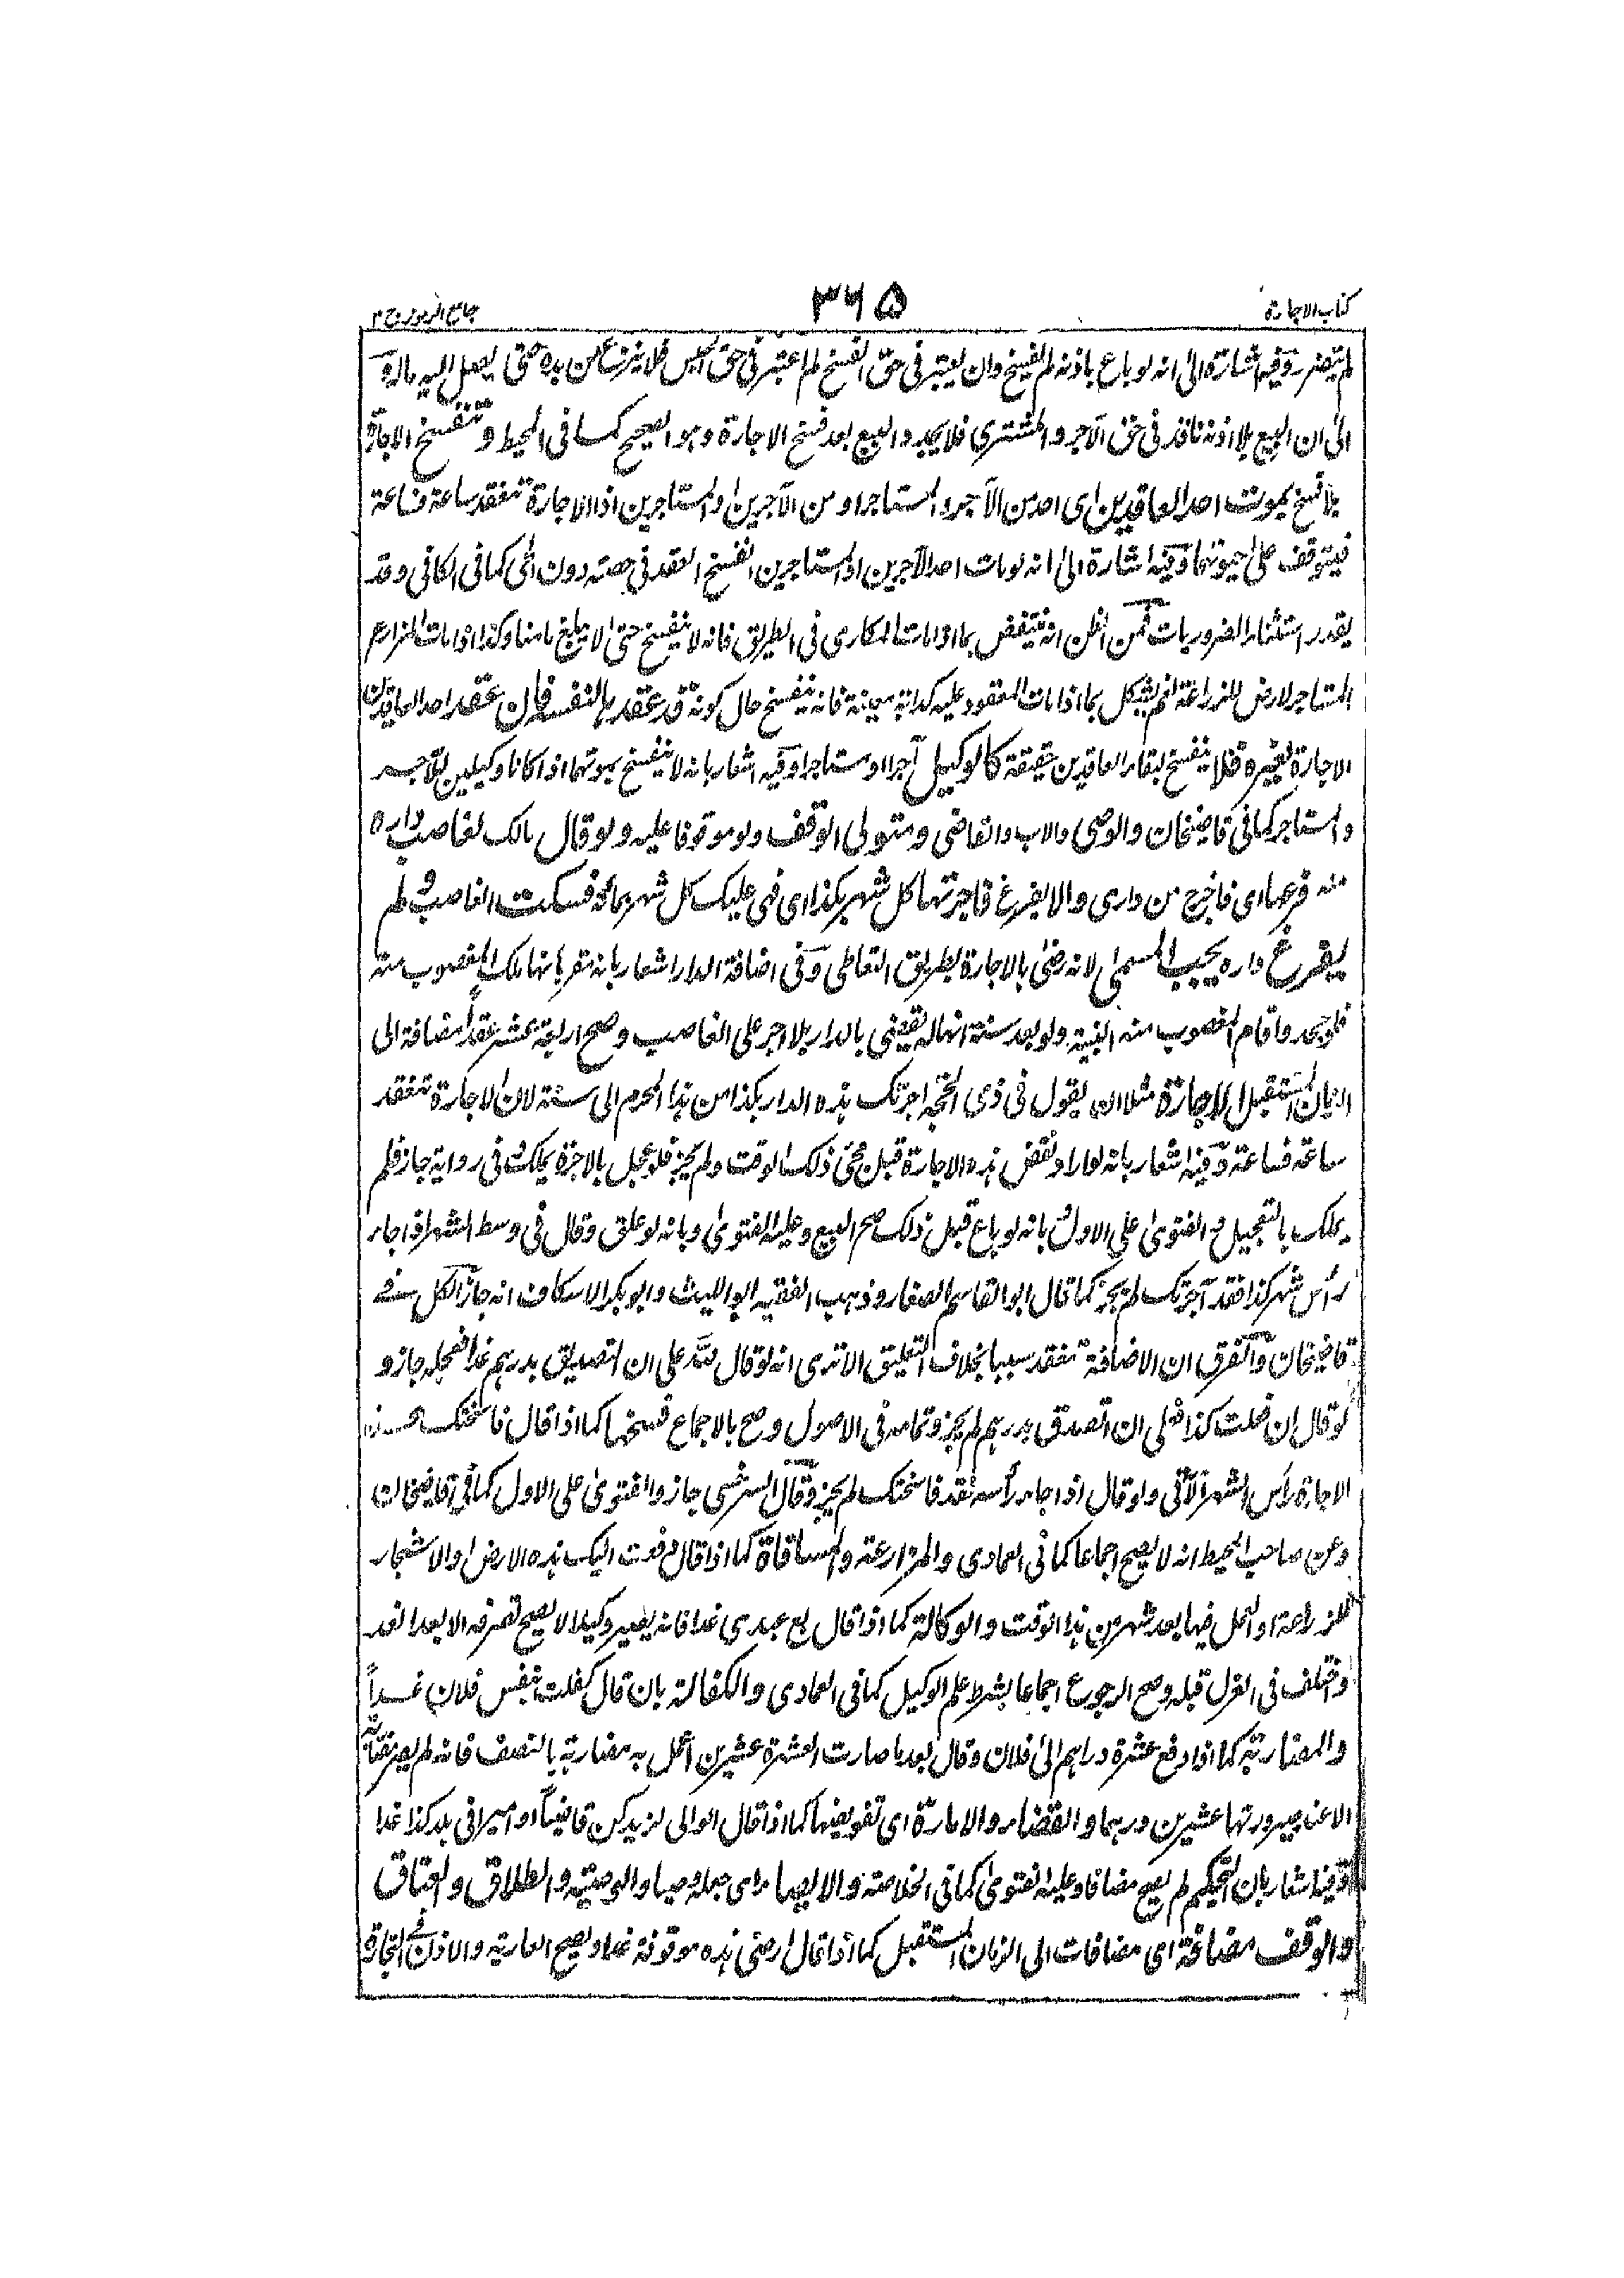 كتاب الاجارة
۳۶۵
جامع الرموز ج ۲
لم يتضرر وفيه اشارة الى انه لو باع باذنه لم يفسخ وان يعتبر فى حق الفسخ لم يعتبر فى حق الحبس فلا ينزع من يده حتى يصل اليه ماله و
الى ان البيع بلا اذنه نافذ فى حق الآجر والمشترى فلا يجدد البيع بعد فسخ الاجارة وهو الصحيح كما فى المحيط و تنفسخ الاجارة
بلا فسخ بموت احد العاقدين اى احد من الآجر والمستاجر او من الآجرين والمستاجرين اذ الاجارة تنعقد ساعة فساعة
فيتوقف على حيوتهما وفيه اشارة الى انه لو مات احد الآجرين او المستاجرين انفسخ العقد فى حصته دون الحى كما فى الكافى وقد
يقدر استثناء الضروريات فمن الظن انه ينتقض بما اذا مات المكارى فى الطريق فانه لا ينفسخ حتى لا يبلغ مامنا وكذا اذا مات المزارع
المستاجر لارض للزراعة لم يشكل بما اذا مات المعقود عليه كدابة معينة فانه ينفسخ حال كونه قد عقدها لنفسه فان عقد احد العاقدين
الاجارة لغيره فلا ينفسخ لبقاء العاقدين حقيقة كالوكيل آجرا او مستاجرا وفيه اشعار بانه لا ينفسخ بموتهما اذا كانا وكيلين للآجر
والمستاجر كما فى قاضيخان والوصى والاب والقاضى و متولى الوقف ولو موقوفا عليه ولو قال مالك لغاصب داره
منه فرغها اى فاخرج من دارى والا يفرغ فاجرتها كل شهر بكذا اى فهى عليك كل شهر بمائة فسكت الغاصب و لم
يفرغ داره يجب المسمى لانه رضى بالاجارة بطريق التعاطى وفى اضافة الدار اشعار بانه مقر بانها ملك المغصوب منه
فلو جحد واقام المغصوب منه البينة ولو بعد سنة انها له يقضى بالدار بلا اجر على الغاصب و صح اربعة عشر عقدا مضافة الى
الزمان المستقبل الاجارة مثلا ان يقول فى ذى الحجة اجرتك هذه الدار بكذا من هذا المحرم الى سنة لان الاجارة تنعقد
ساعة فساعة وفيه اشعار بانه لو اراد نقض هذه الاجارة قبل مجئ ذلك الوقت ولم يجز فلو عجل بالاجرة يملك فى رواية جاز فلم
يملك بالتعجيل والفتوى على الاول وبانه لو باع قبل ذلك صح البيع وعليه الفتوى وبانه لو علق وقال فى وسط الشهر اذا جاء
رأس شهر كذا فقد آجرتك لم يجز كما قال ابو القاسم الصفار وذهب الفقيه ابو الليث وابو بكر الاسكاف انه جاز الكل فى
قاضيخان والفرق ان الاضافة تنعقد سببا بخلاف التعليق الا ترى انه لو قال لله على ان اتصدق بدرهم غدا فعجله جاز و
لو قال ان فعلت كذا فعلى ان اتصدق بدرهم لم يجز وتمامه فى الاصول و صح بالاجماع فسخها كما اذا قال فاسختك هذه
الاجارة رأس الشهر الآتى ولو قال اذا جاء رأسه فقد فاسختك لم يجز وقال السرخسى جاز والفتوى على الاول كما فى قاضيخان
وعن صاحب المحيط انه لا يصح اجماعا كما فى العمادى والمزارعة والمساقاة كما اذا قال دفعت اليك هذه الارض او الاشجار
للزراعة او العمل فيها بعد شهر من هذا الوقت والوكالة كما اذا قال بع عبدى غدا فانه يصير وكيلا لا يصح تصرفه الا بعد الغد
واختلف فى العزل قبله وصح الرجوع اجماعا بشرط علم الوكيل كما فى العمادى والكفالة بان قال كفلت بنفس فلان غدا
والمضاربة كما اذا دفع عشرة دراهم الى فلان وقال بعد ما صارت العشرة عشرين اعمل به مضاربة بالنصف فانه لم يصر مضاربة
الا عند صيرورتها عشرين درهما والقضاء والامارة اى تفويضها كما اذا قال الوالى لزيد كن قاضيا او اميرا فى بلد كذا غدا
وفيه اشعار بان التحكيم لم يصح مضافا وعليه الفتوى كما فى الخلاصة والايصاء اى جعله وصيا والوصية والطلاق والعتاق
والوقف مضافة اى مضافات الى الزمان المستقبل كما اذا قال ارضى هذه موقوفة غدا ويصح العارية والاذن فى التجارة